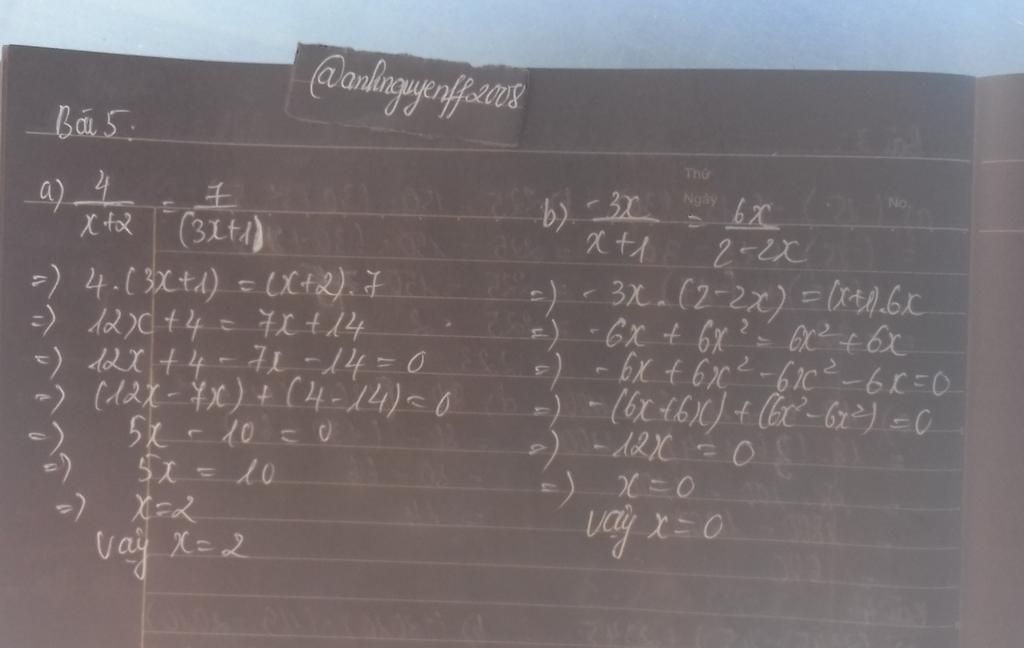 @anhnguyenff2008
Bài 5:
Thứ
Ngày
No.
a) 4/(x+2) = 7/(3x+1)
=> 4.(3x+1) = (x+2).7
=> 12x + 4 = 7x + 14
=> 12x + 4 - 7x - 14 = 0
=> (12x - 7x) + (4 - 14) = 0
=> 5x - 10 = 0
=> 5x = 10
=> x = 2
Vậy x = 2
b) -3x/(x+1) = 6x/(2-2x)
=> -3x.(2-2x) = (x+1).6x
=> -6x + 6x² = 6x² + 6x
=> -6x + 6x² - 6x² - 6x = 0
=> -(6x+6x) + (6x² - 6x²) = 0
=> -12x = 0
=> x = 0
Vậy x = 0